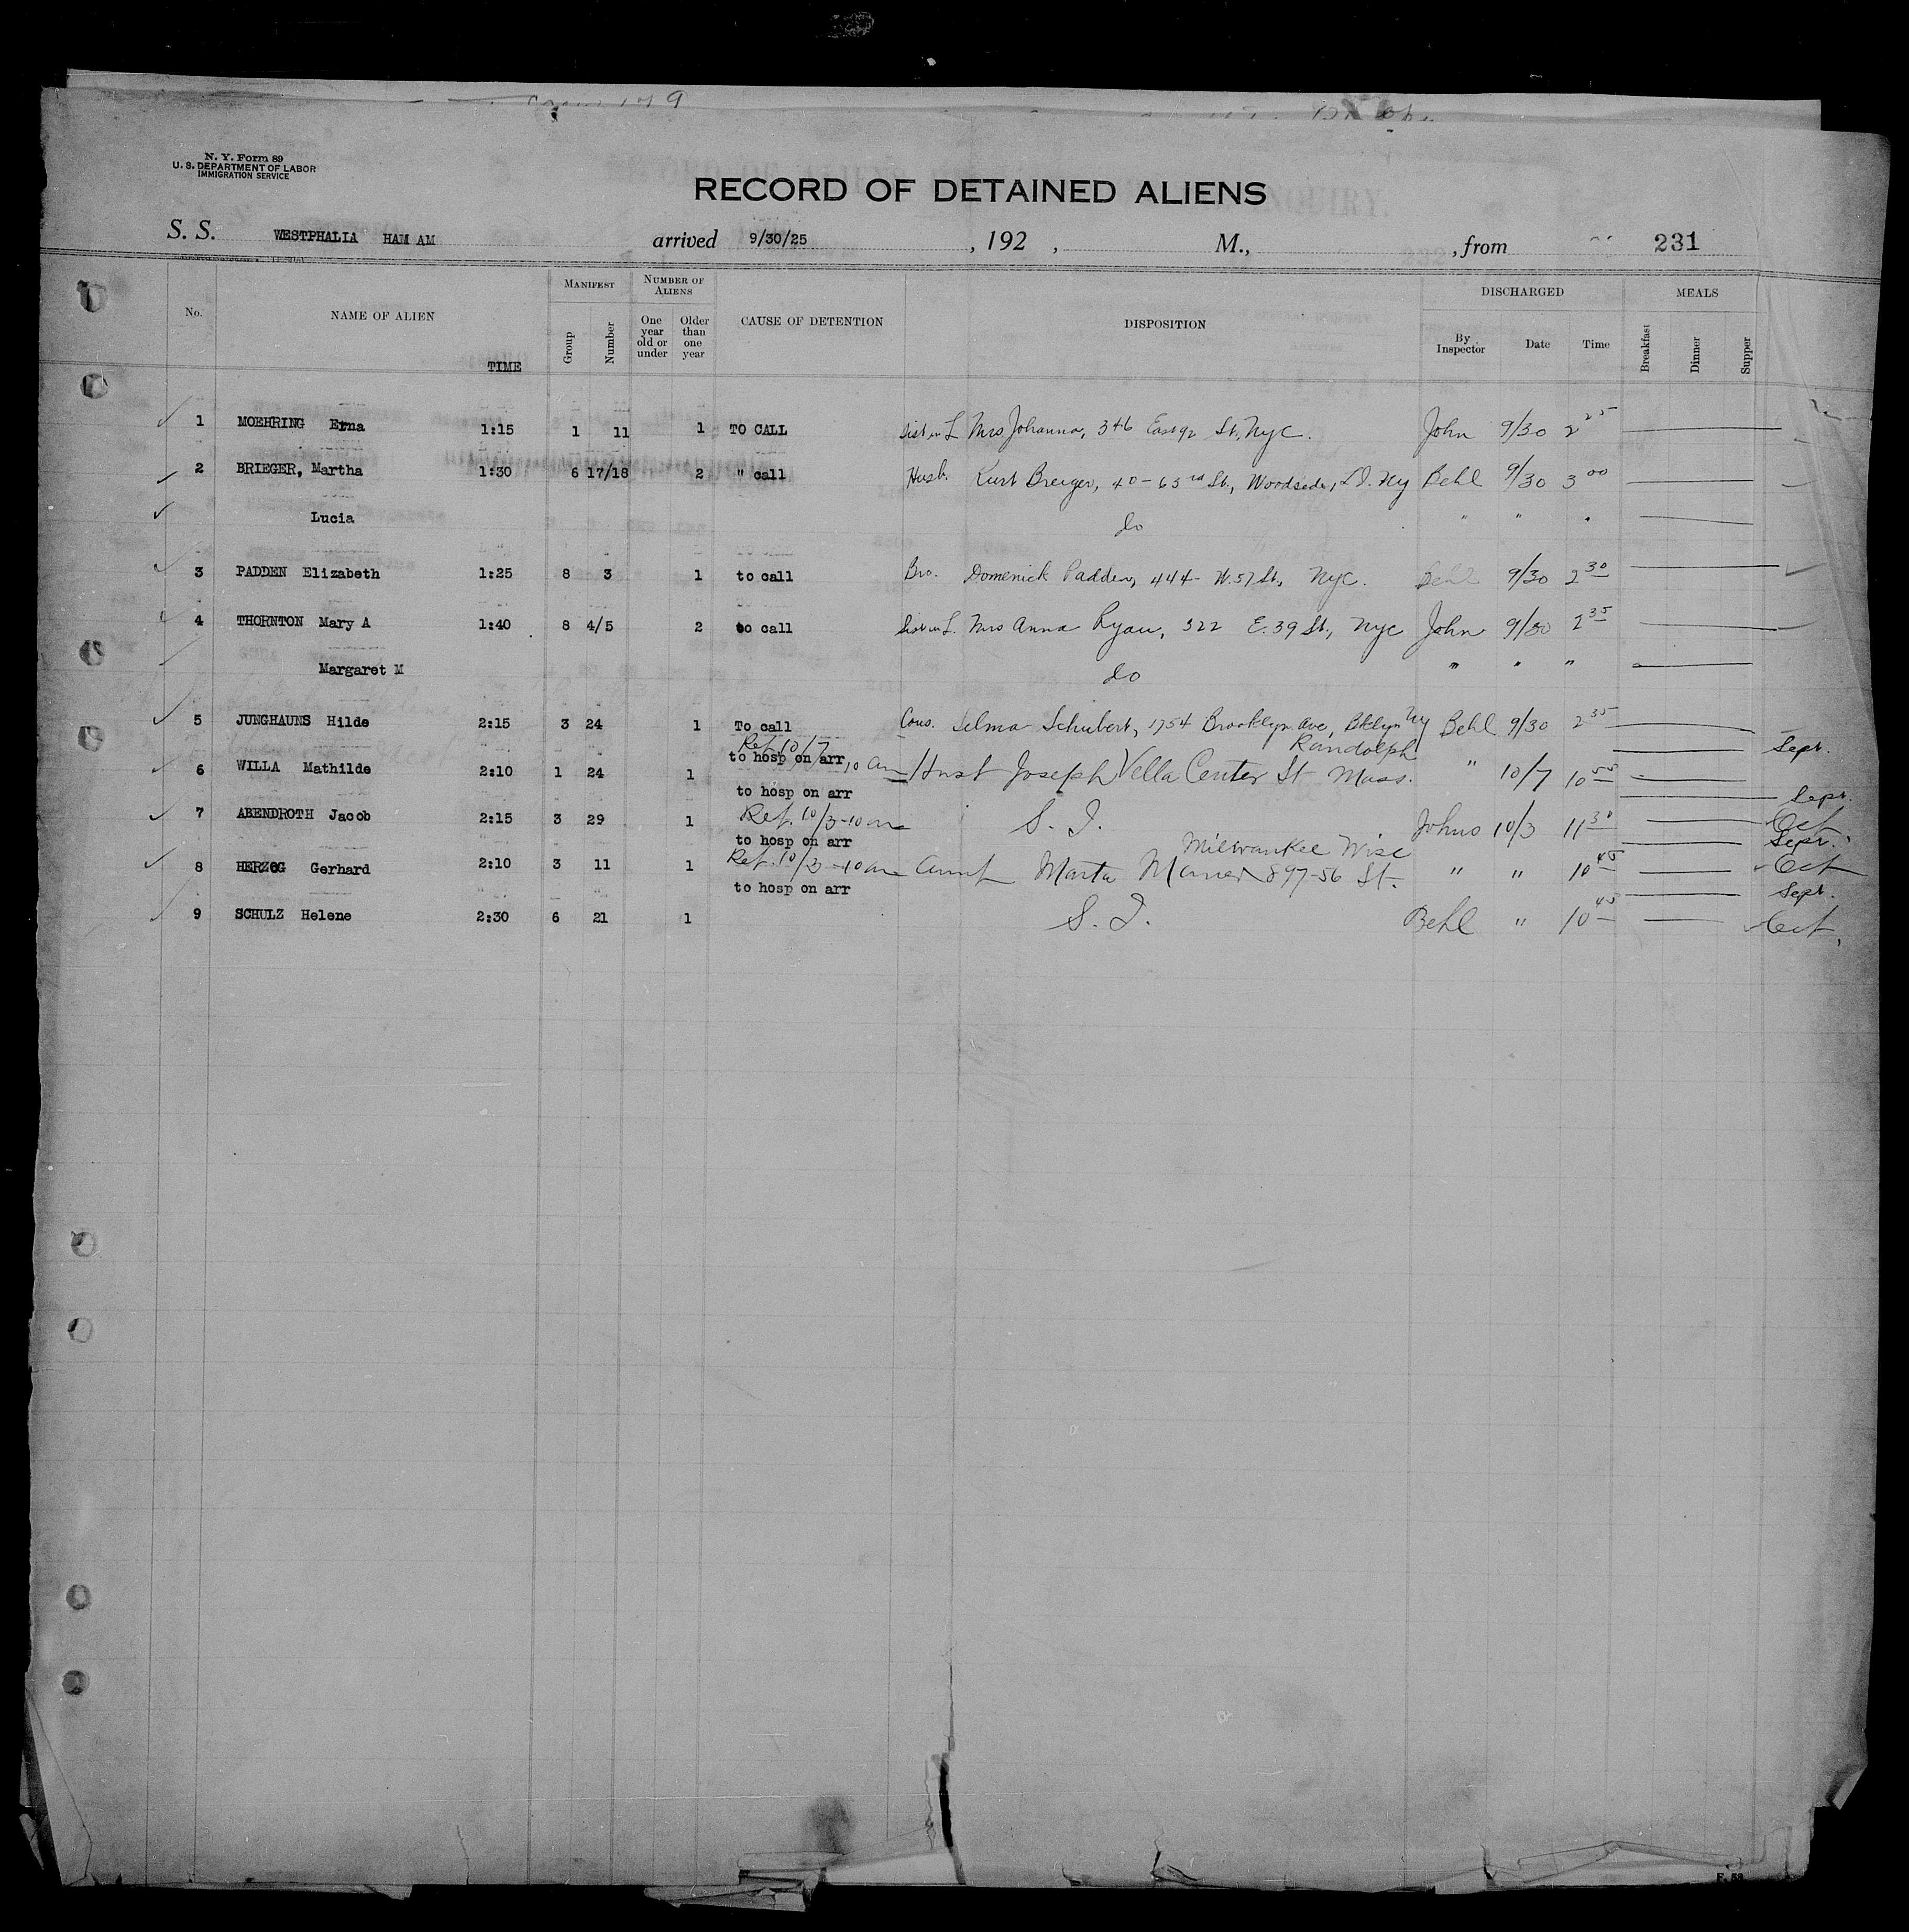 N. Y. Form 89
U. S. DEPARTMENT OF LABOR
IMMIGRATION SERVICE
RECORD OF DETAINED ALIENS
S. S. WESTPHALIA HAM AM arrived 9/30/25 , 192 , M., , from 231
No. NAME OF ALIEN TIME MANIFEST Group Number NUMBER OF ALIENS One year old or under Older than one year CAUSE OF DETENTION DISPOSITION DISCHARGED By Inspector Date Time MEALS Breakfast Dinner Supper
1 MOEHRING Erna 1:15 1 11 1 TO CALL Sist in L Mrs Johanna, 346 East 92 St, NYC. John 9/30 2 25
2 BRIEGER, Martha 1:30 6 17/18 2 " call Husb. Kurt Breiger, 40-63rd St., Woodside, L.I. NY Behl 9/30 3 00
Lucia do " " "
3 PADDEN Elizabeth 1:25 8 3 1 to call Bro. Domenick Padden, 444- W. 57 St., NYC. Behl 9/30 2 30
4 THORNTON Mary A 1:40 8 4/5 2 to call Sist in L. Mrs Anna Ryan, 322 E. 39 St., NYC John 9/30 2 35
Margaret M do " " "
5 JUNGHAUNS Hilde 2:15 3 24 1 To call Cous. Selma Schubert, 1754 Brooklyn Ave, Bklyn NY Behl 9/30 2 35
Ret 10/7 Randolph
to hosp on arr Sept.
6 WILLA Mathilde 2:10 1 24 1 10 am Hust Joseph Vella Center St Mass. " 10/7 10 55
to hosp on arr Sept.
7 ABENDROTH Jacob 2:15 3 29 1 Ret. 10/3-10 am S. I. Johns 10/3 11 30 Oct
to hosp on arr Milwaukee Wisc Sept.
8 HERZOG Gerhard 2:10 3 11 1 Ret. 10/3-10 am Aunt Marta 897-56 St. " " 10 45 Oct
to hosp on arr Sept.
9 SCHULZ Helene 2:30 6 21 1 S. I. Behl " 10 45 Oct.